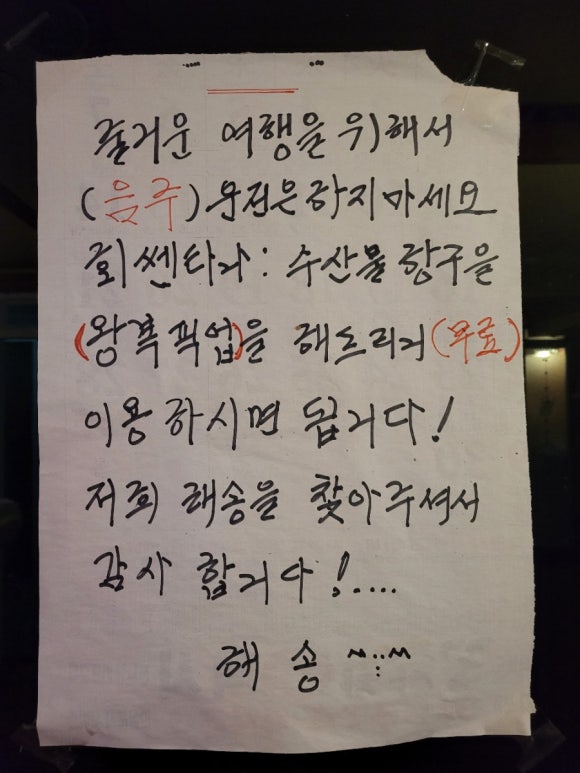 즐거운 여행을 위해서
(음주) 운전은 하지마세요
회쎈타나: 수산물 항구을
(왕복픽업)을 해드리니 (무료)
이용 하시면 됩니다!
저희 해송을 찾아주셔서
감사 합니다!....
해 송